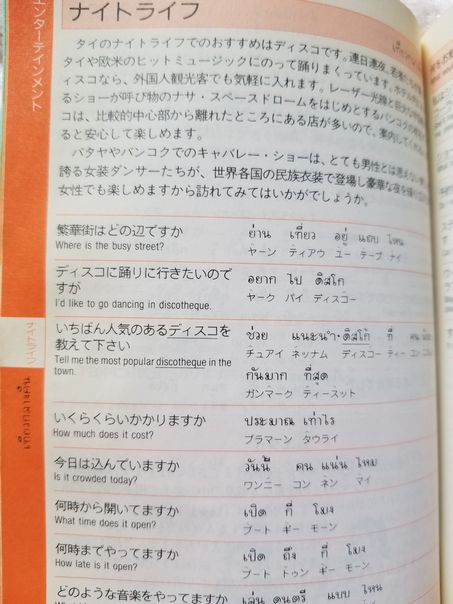 エンターテインメント
ナイトライフ
タイのナイトライフでのおすすめはディスコです。連日連夜、若者たちが
タイや欧米のヒットミュージックにのって踊りまくっています。ホテルの
ディスコなら、外国人観光客でも気軽に入れます。レーザー光線と
るショーが呼び物のナサ・スペースドロームをはじめとするバンコクの
コは、比較的中心部から離れたところにある店が多いので、案内して
ると安心して楽しめます。
パタヤやバンコクでのキャバレー・ショーは、とても男性とは思えない
誇る女装ダンサーたちが、世界各国の民族衣装で登場し豪華な夜を
女性でも楽しめますから訪れてみてはいかがでしょうか。
繁華街はどの辺ですか
Where is the busy street?
ย่าน เที่ยว อยู่ แถบ ไหน
ヤーン ティアウ ユー テープ ナイ
ディスコに踊りに行きたいのですが
I'd like to go dancing in discotheque.
อยาก ไป ดิสโก
ヤーク パイ ディスコー
いちばん人気のあるディスコを
教えて下さい
Tell me the most popular discotheque in the
town.
ช่วย แนะนำ ดิสโก้ ที่
チュアイ ネッナム ディスコー ティー コン
กันมาก ที่สุด
ガンマーク ティースット
いくらくらいかかりますか
How much does it cost?
ประมาณ เท่าไร
プラマーン タウライ
今日は込んでいますか
Is it crowded today?
วันนี้ คน แน่น ไหม
ワンニー コン ネン マイ
何時から開いてますか
What time does it open?
เปิด กี่ โมง
プート ギー モーン
何時までやってますか
How late is it open?
เปิด ถึง กี่ โมง
プート トゥン ギー モーン
どのような音楽をやってますか
เล่น ดนตรี แบบ ไหน
ナイトライフ